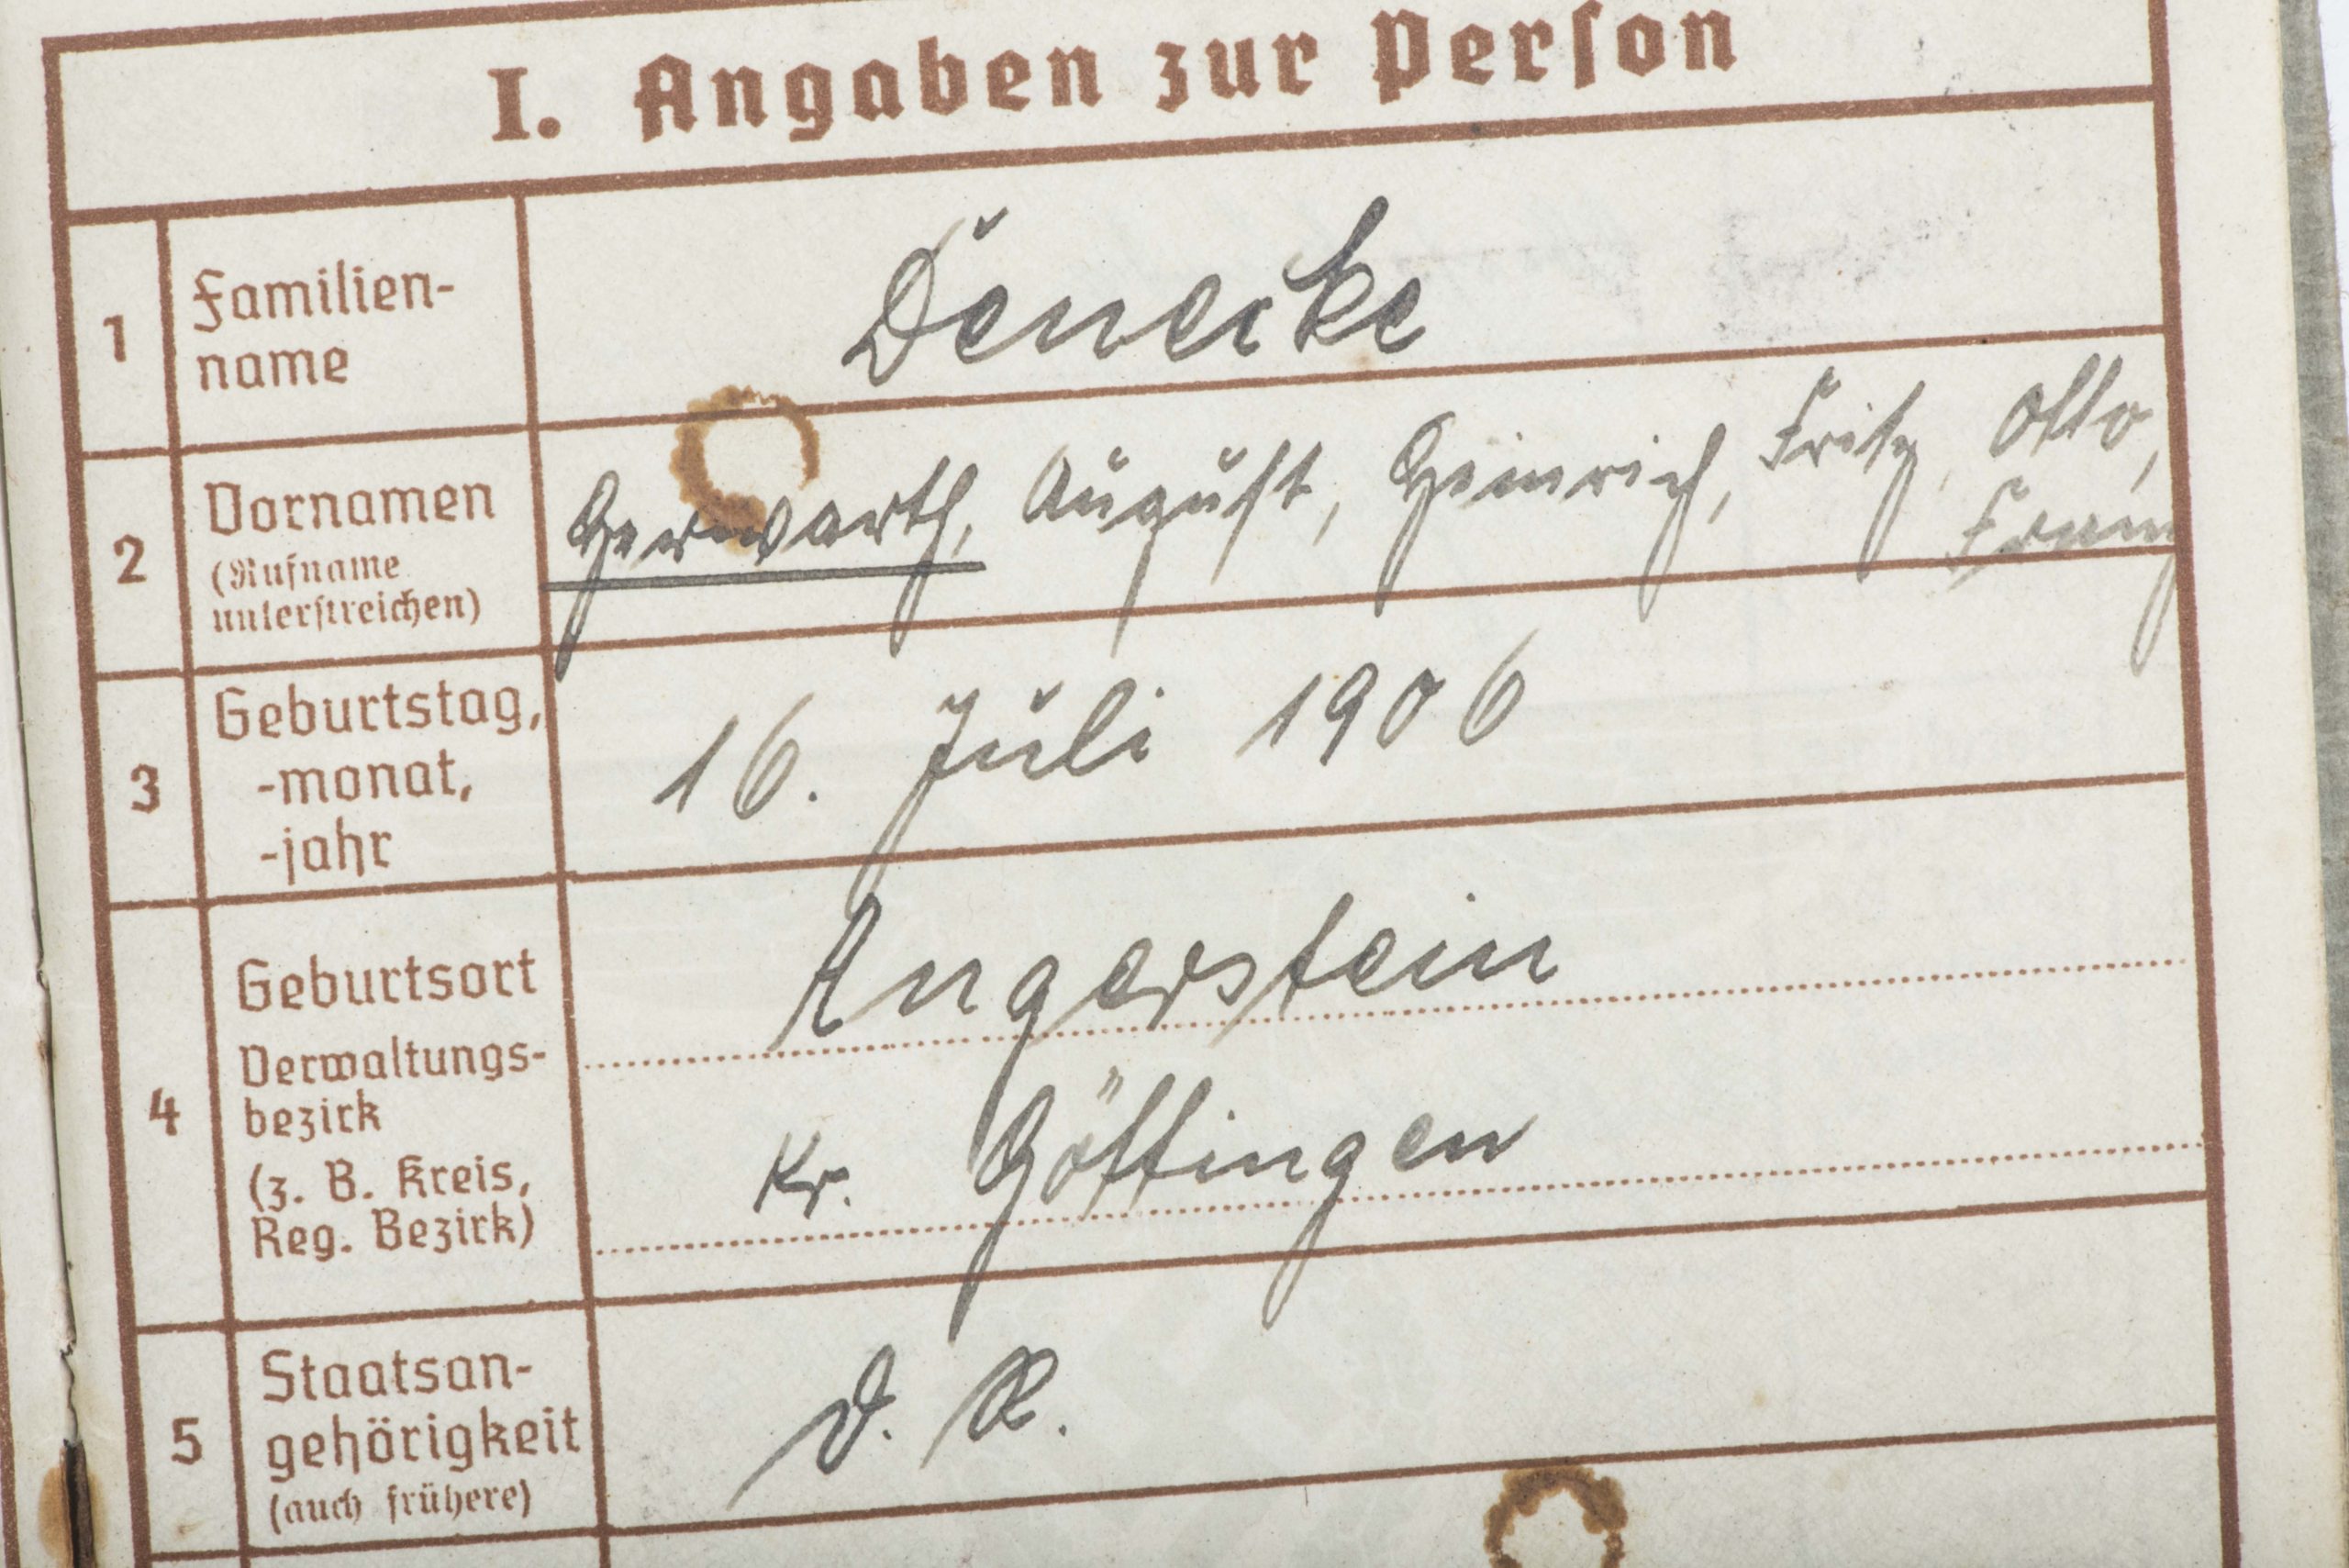 I. Angaben zur Person
1
Familien-
name
Denecke
2
Vornamen
(Rufname
unterstreichen)
Gerwarth, August, Heinrich, Fritz, Otto,
Franz
3
Geburtstag,
-monat,
-jahr
16. Juli 1906
4
Geburtsort
Angerstein
Verwaltungs-
bezirk
(z. B. Kreis,
Reg. Bezirk)
Kr. Göttingen
5
Staatsan-
gehörigkeit
(auch frühere)
D. R.